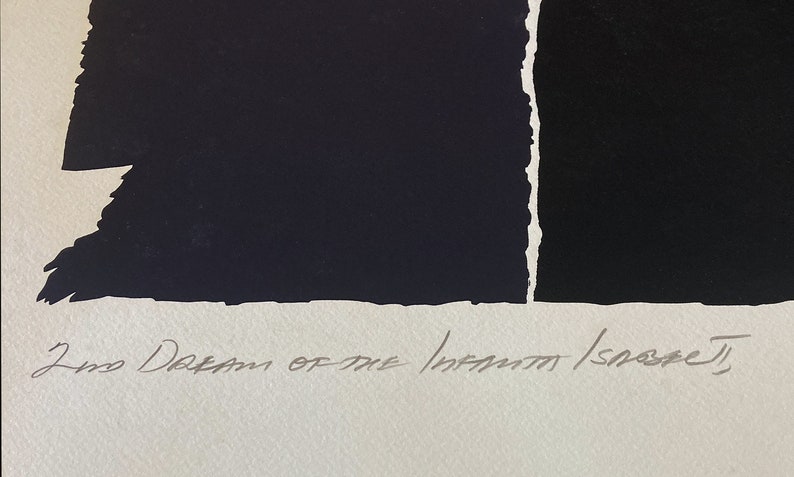 2nd Dream of the Infanta Isabel II,